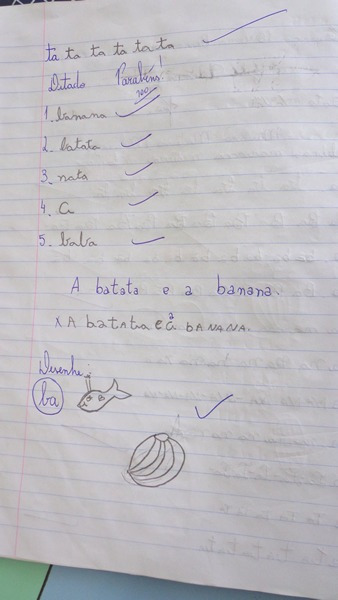 ta ta ta ta ta ta
Ditado Parabéns!
100
1. banana
2. batata
3. nata
4. a
5. baba
A batata e a banana.
x A batata e a a BANANA.
Desenhe:
ba